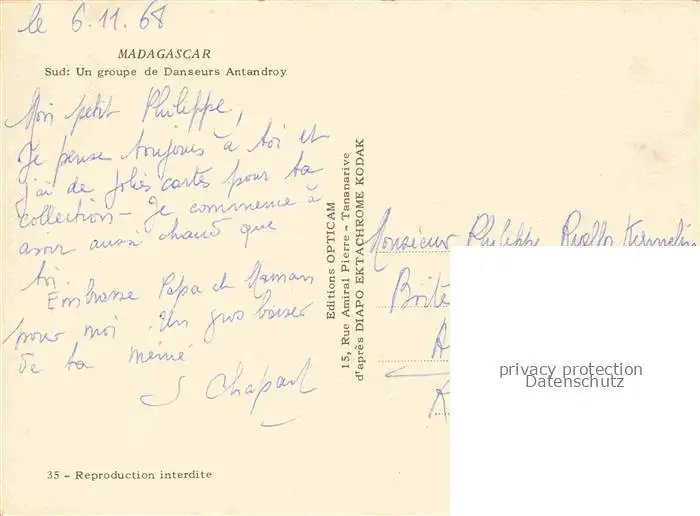 le 6.11.68
MADAGASCAR
Sud: Un groupe de Danseurs Antandroy
Mon petit Philippe,
Je pense toujours à toi et
j'ai de jolies cartes pour ta
collection – Je commence à
avoir aussi chaud que
toi.
Embrasse Papa et Maman
pour moi. Un gros baiser
de ta mémé
S Chapart
35 – Reproduction interdite
Editions OPTICAM
15, Rue Amiral Pierre – Tananarive
d'après DIAPO EKTACHROME KODAK
Monsieur Philippe
Boîte
A
privacy protection
Datenschutz